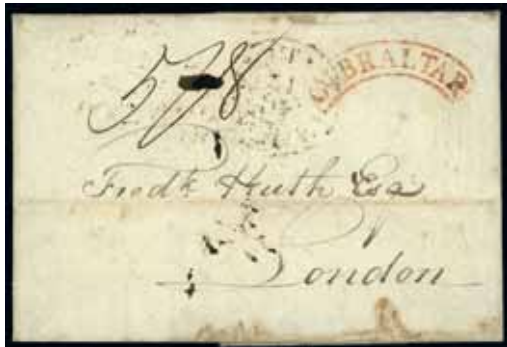 GIBRALTAR
5/8
Fredk Huth Esq
London